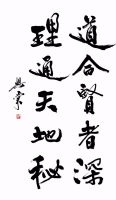 道合賢者深
理通天地秘